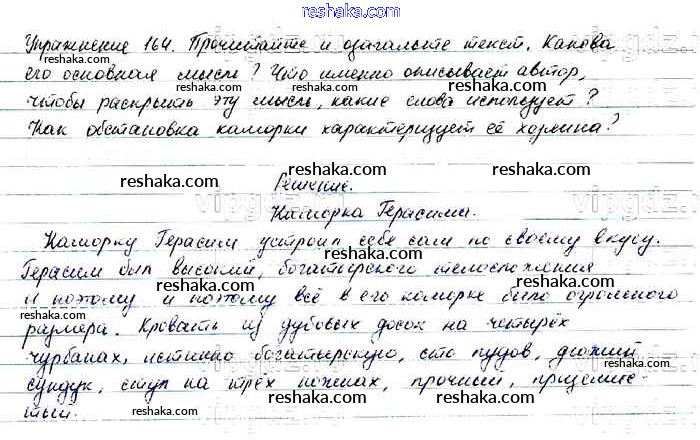 reshaka.com
Упражнение 164. Прочитайте и озаглавьте текст. Какова
его основная мысль? Что именно описывает автор,
reshaka.com reshaka.com reshaka.com
чтобы раскрыть эту мысль, какие слова использует?
Как обстановка каморки характеризует её хозяина?
reshaka.com reshaka.com reshaka.com
Решение.
reshaka.com reshaka.com
Каморка Герасима.
Каморку Герасим устроил себе сам по своему вкусу.
reshaka.com reshaka.com reshaka.com
Герасим был высокий, богатырского телосложения
и поэтому и поэтому всё в его каморке было огромного
reshaka.com reshaka.com
размера. Кровать из дубовых досок на четырёх
reshaka.com reshaka.com reshaka.com
чурбанах, истинно богатырскую, сто пудов, дюжий
сундук, стул на трёх ножках, прочный, приземис-
reshaka.com reshaka.com
тый.
reshaka.com